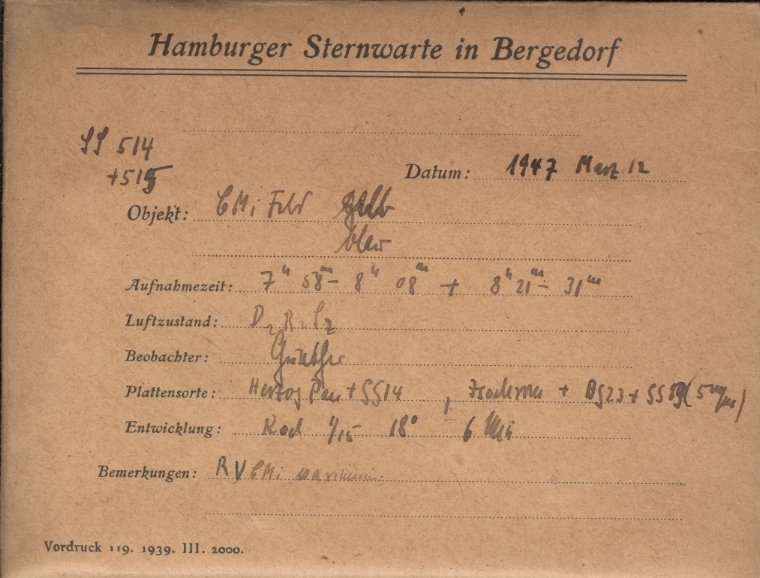 Hamburger Sternwarte in Bergedorf
SS 514
+515
Datum: 1947 März 12
Objekt: CMi Feld gelb
blau
Aufnahmezeit: 7h 58m – 8h 08m + 8h 21m – 31m
Luftzustand: D2 R2 S2
Beobachter:
Plattensorte: Herzog Pan + GG14, + BG23 +
Entwicklung: Rod 1/15 18° 6 Min
Bemerkungen: RV CMi maximum
Vordruck 119. 1939. III. 2000.